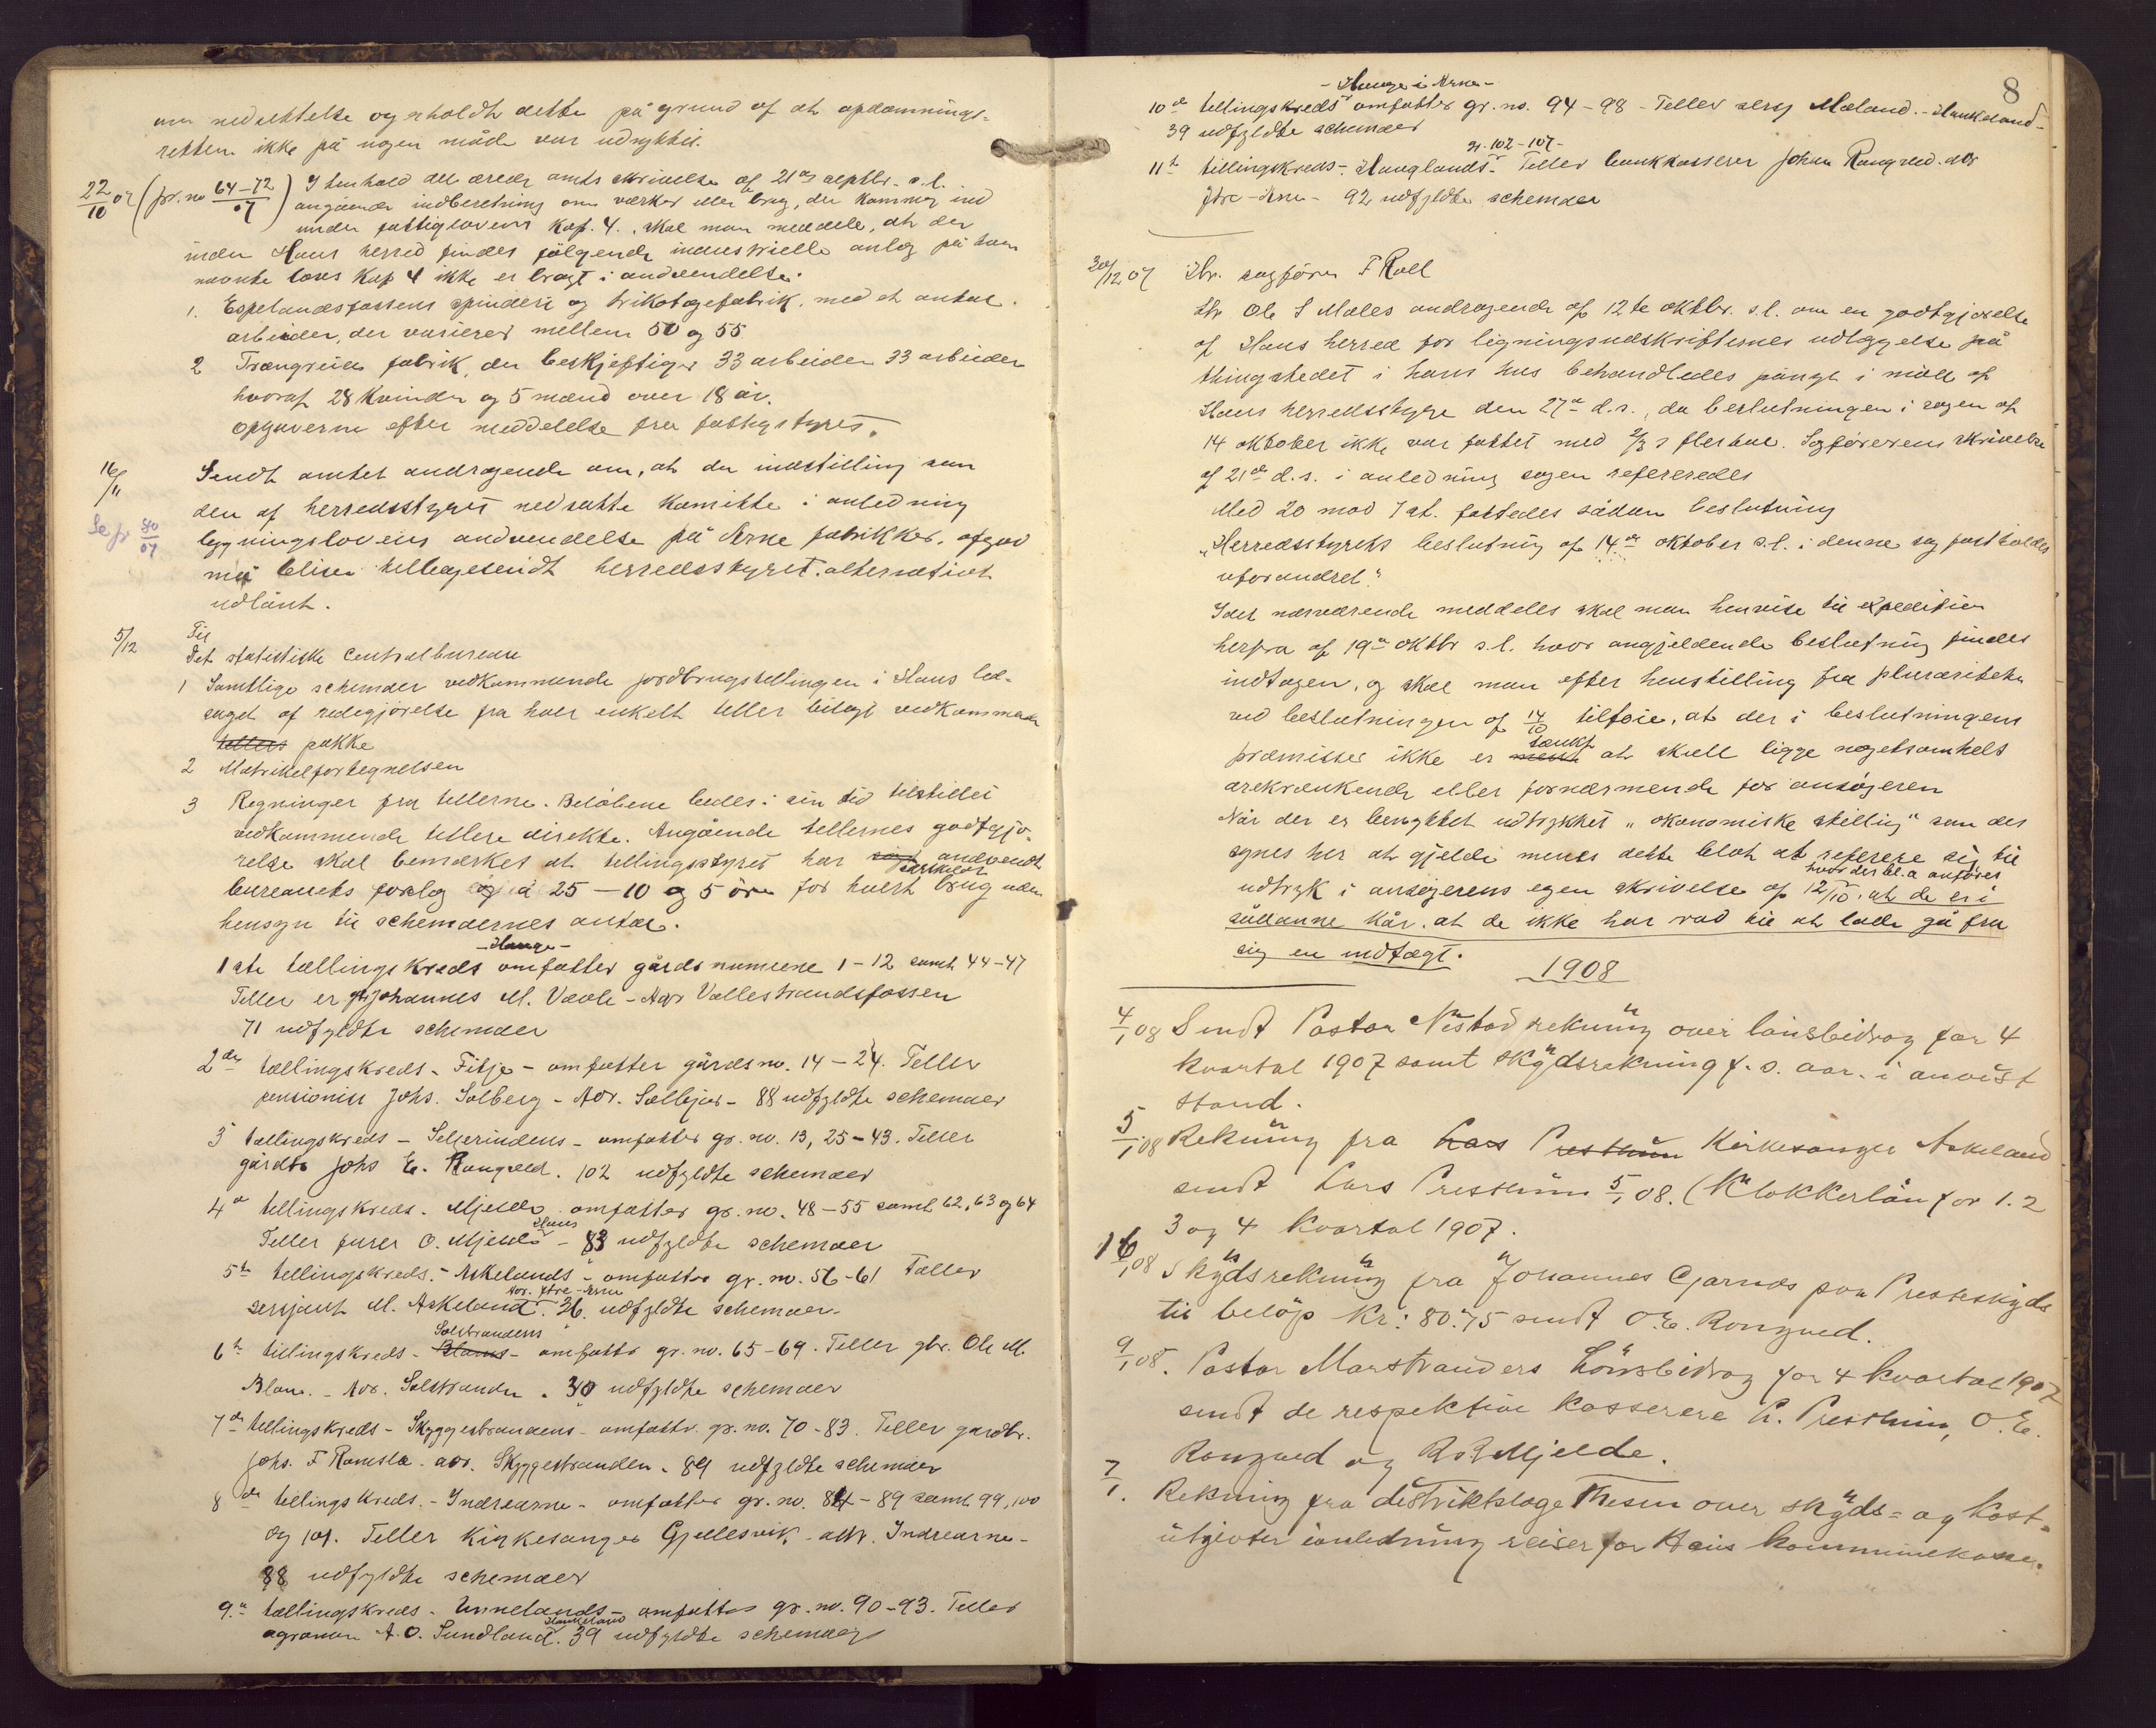 om nedsettelse og erholdt dette på grund af at opdæmnings-
retten ikke på nogen måde var udnyttet.
22/10 07 (jr. no 64-72/07) I henhold det ærede amts skrivelse af 21de septbr. s.l.
angående indberetning om værker eller brug, der kommer ind
under fattiglovens kap. 4., skal man meddele, at der
inden Haus herred findes følgende industrielle anlæg på hvem
nævnte lovs kap 4 ikke er bragt i andvendelse:
1. Espelandsfossens spinderi og trikotagefabrik, med et antal
arbeider, der varierer mellem 50 og 55
2 Trængereid fabrik, der beskjeftiger 33 arbeider 33 arbeider
hvoraf 28 kvinder og 5 mænd over 18 år.
Opgaverne efter meddelelse fra fattigstyret.
16/11 Sendt amtet andragende om, at den indstilling som
den af herredsstyret nedsatte komite i anledning
Se jr 80/07 bygningslovens andvendelse på Arne fabrikker, afgav
må blive tilbagesendt herredsstyret. alternativt
udlånt.
5/12 Til
Det statistiske Centralbureau
1 Samtlige schemaer vedkommende jordbrugstellingen i Haus led-
saget af redegjørelse fra hver enkelt teller bilagt vedkommende
tellers pakke
2 Matrikelfortegnelsen
3 Regninger fra tellerne. Beløbene bedes i sin tid tilstillet
vedkommende tellere direkte. Angående tellernes godtgjø-
relse skal bemærkes at tellingsstyret har andvendt
bureauets forslag à 25 - 10 og 5 øre for hvert særskilt brug uden
hensyn til schemaernes antal.
- Hauge -
1ste tællingskreds omfatter gårdsnumrene 1 - 12 samt 44-47
Teller er gbr Johannes M. Vavle - Adr Vallestrandsfossen
71 udfyldte schemaer
2den tællingskreds - Fitje - omfatter gårdsno. 14 - 24. Teller
pensionist Johs. Solberg - Adr. Solbjør - 88 udfyldte schemaer
3 tællingskreds - omfatter gr. no. 13, 25-43. Teller
gårdbr Johs E. Rongved. 102 udfyldte schemaer
4de tellingskreds. Mjelde omfatter gr. no. 48-55 samt 62, 63 og 64
Teller furer O. Mjelde Haus - 83 udfyldte schemaer
5te tellingskreds. - Askelands - omfatter gr. no. 56-61 Tæller
sersjant M. Askeland. Adr. Ytre-Arne 36 udfyldte schemaer
6te tellingskreds - Blams Solstrandens - omfatter gr. no. 65-69. Teller gbr. Ole M.
Blom. - Adr. Solstranden. 30 udfyldte schemaer
7de tellingskreds - Skyggestrandens - omfatter gr. no. 70-83. Teller gardbr.
Johs. F Romslo. adr. Skyggestranden. 89 udfyldte schemaer
8de tellingskreds. - Indrearne - omfatter gr. no. 84-89 samt 99, 100
og 101. Teller Kirkesanger Gjellesvik - adr. Indrearne -
88 udfyldte schemaer
9de tællingskreds - Unnelands - omfatter gr. no. 90-93. Teller
agronom A.O. Sundland. Haukeland 39 udfyldte schemaer
8
- Hauge i Arne -
10de tellingskreds omfatter gr. no. 94-98 - Teller sersj Mæland. - Haukeland -
39 udfyldte schemaer
11te tellingskreds - Hauglands - n. 102-107 - Teller bankkasserer Johan Rongved. adr
Ytre-Arne - 92 udfyldte schemaer
30/12 07 Hr. sagfører F Roll
Hr Ole S Males andragende af 12te oktbr. s.l. om en godtgjørelse
af Haus herred for ligningsudskrifternes udlæggelse på
thingstedet i hans hus behandledes pånyt i møde af
Haus herredsstyre den 27de d.s., da beslutningen i sagen af
14 oktober ikke var fattet med 2/3 s flertal. Sagførerens skrivelse
af 21de d.s. i anledning sagen refereredes
Med 20 mod 7 st. fattedes sådan beslutning
"Herredsstyrets beslutning af 14de oktober s.l. i denne sag fastholdes
uforandret."
Idet nærværende meddeles skal man henvise til expedition
herfra af 19de oktbr s.l. hvor angjeldende beslutning findes
indtagen, og skal man efter henstilling fra pluraliteten
ved beslutningen af 14/10 tilføie, at der i beslutningens
præmisser ikke er tænkt at skull ligge nogetsomhelst
ærekrænkende eller fornærmende for ansøgeren
Når der er benyttet udtrykket "økonomiske stilling" som det
synes her at gjelde menes dette blot at referere sig til
udtryk i ansøgerens egen skrivelse af 12/10, hvor der bl.a anføres at de er i
sådanne kår, at de ikke har råd til at lade gå fra
sig en indtægt.
1908
4/1 08 Sendt Pastor Nistad rekning over lønsbidrag for 4
kvartal 1907 samt skydsrekning f. s. aar. i anvist
stand.
5/1 08 Rekning fra Lars Presthun Kirkesanger Askeland
sendt Lars Presthun 5/1 08. (Klokkerløn for 1. 2
3 og 4 kvartal 1907.
16/1 08 Skydsrekning fra Johannes Gjernes paa Presteskyds
til beløp kr: 80.75 sendt O.E. Rongved.
9/1 08. Pastor Marstranders Lønsbidrag for 4 kvartal 1907
sendt de respektive kasserere L. Presthun, O.E.
Rongved og R. R. Mjelde.
7/1. Rekning fra distriktslæge Thesen over skyds- og kost-
utgivter i anledning reiser for Haus kommunekasse.